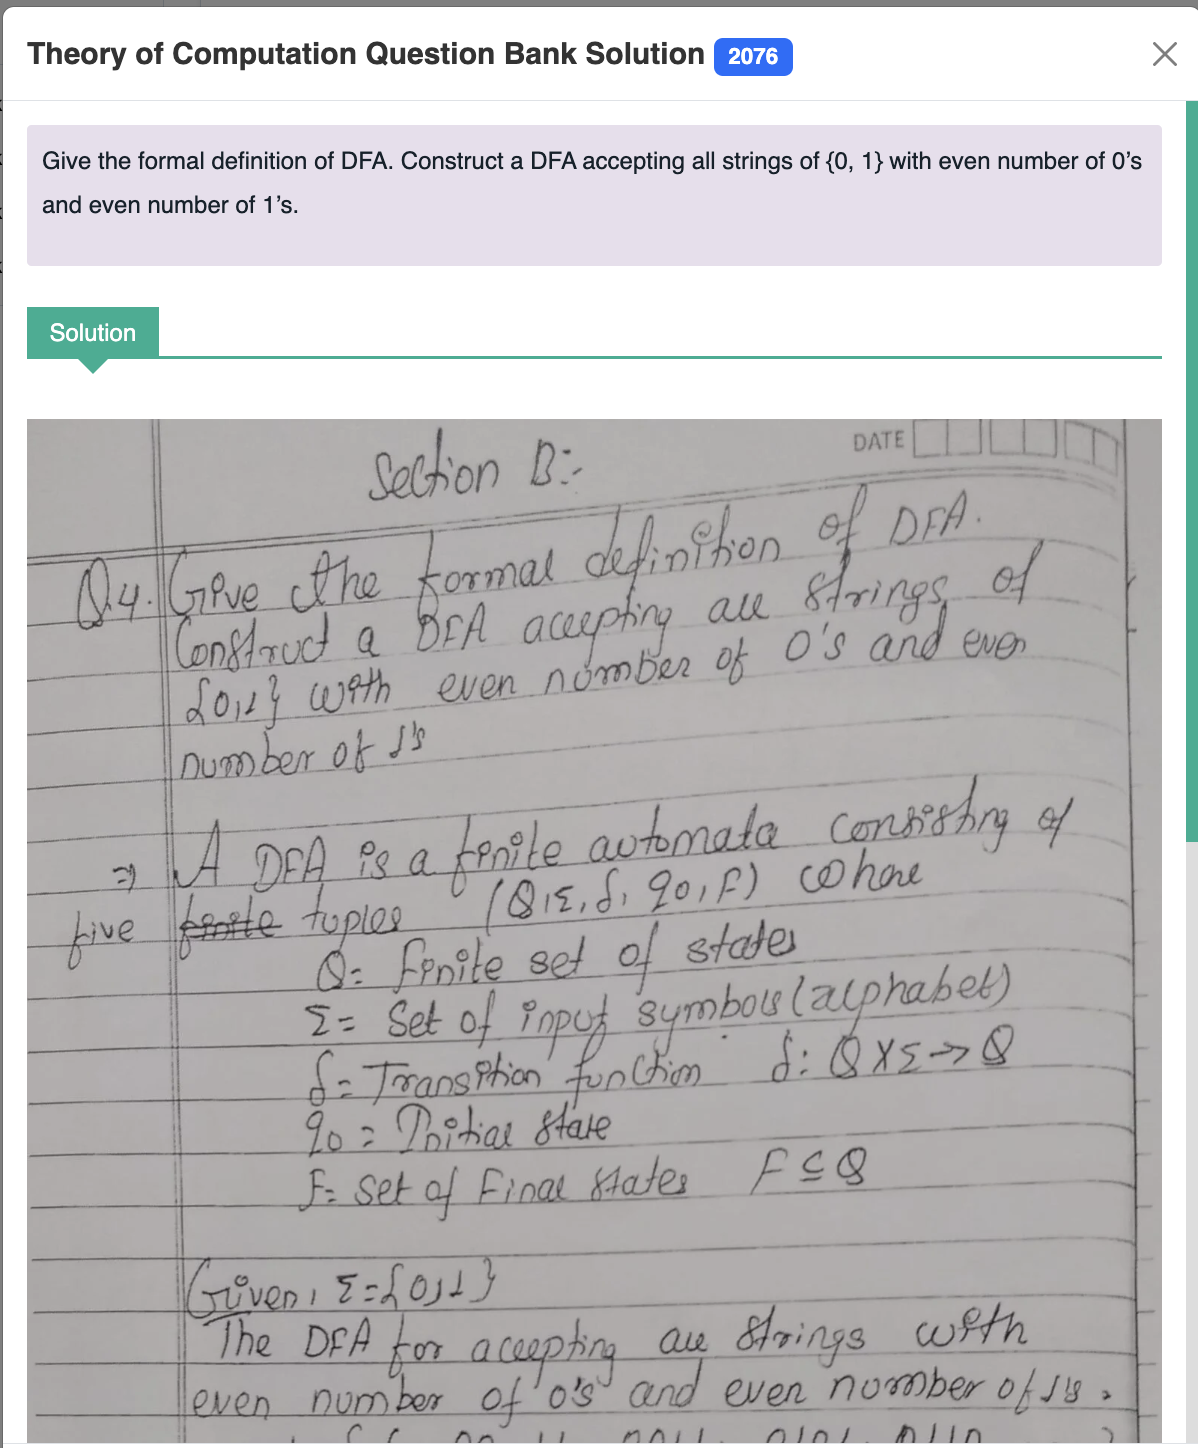 Theory of Computation Question Bank Solution 2076
Give the formal definition of DFA. Construct a DFA accepting all strings of {0, 1} with even number of 0's
and even number of 1's.
Solution
DATE
Section B:-
Q.4. Give the formal definition of DFA.
Construct a DFA accepting all strings of
{0,1} with even number of 0's and even
number of 1's
⇒ A DFA is a finite automata consisting of
five finite tuples (Q, Σ, δ, q0, F) where
Q = finite set of states
Σ = Set of input symbols (alphabet)
δ = Transition function δ: Q X Σ → Q
q0 = Initial state
F = set of Final states F ⊆ Q
Given, Σ = {0,1}
The DFA for accepting all strings with
even number of 0's and even number of 1's.